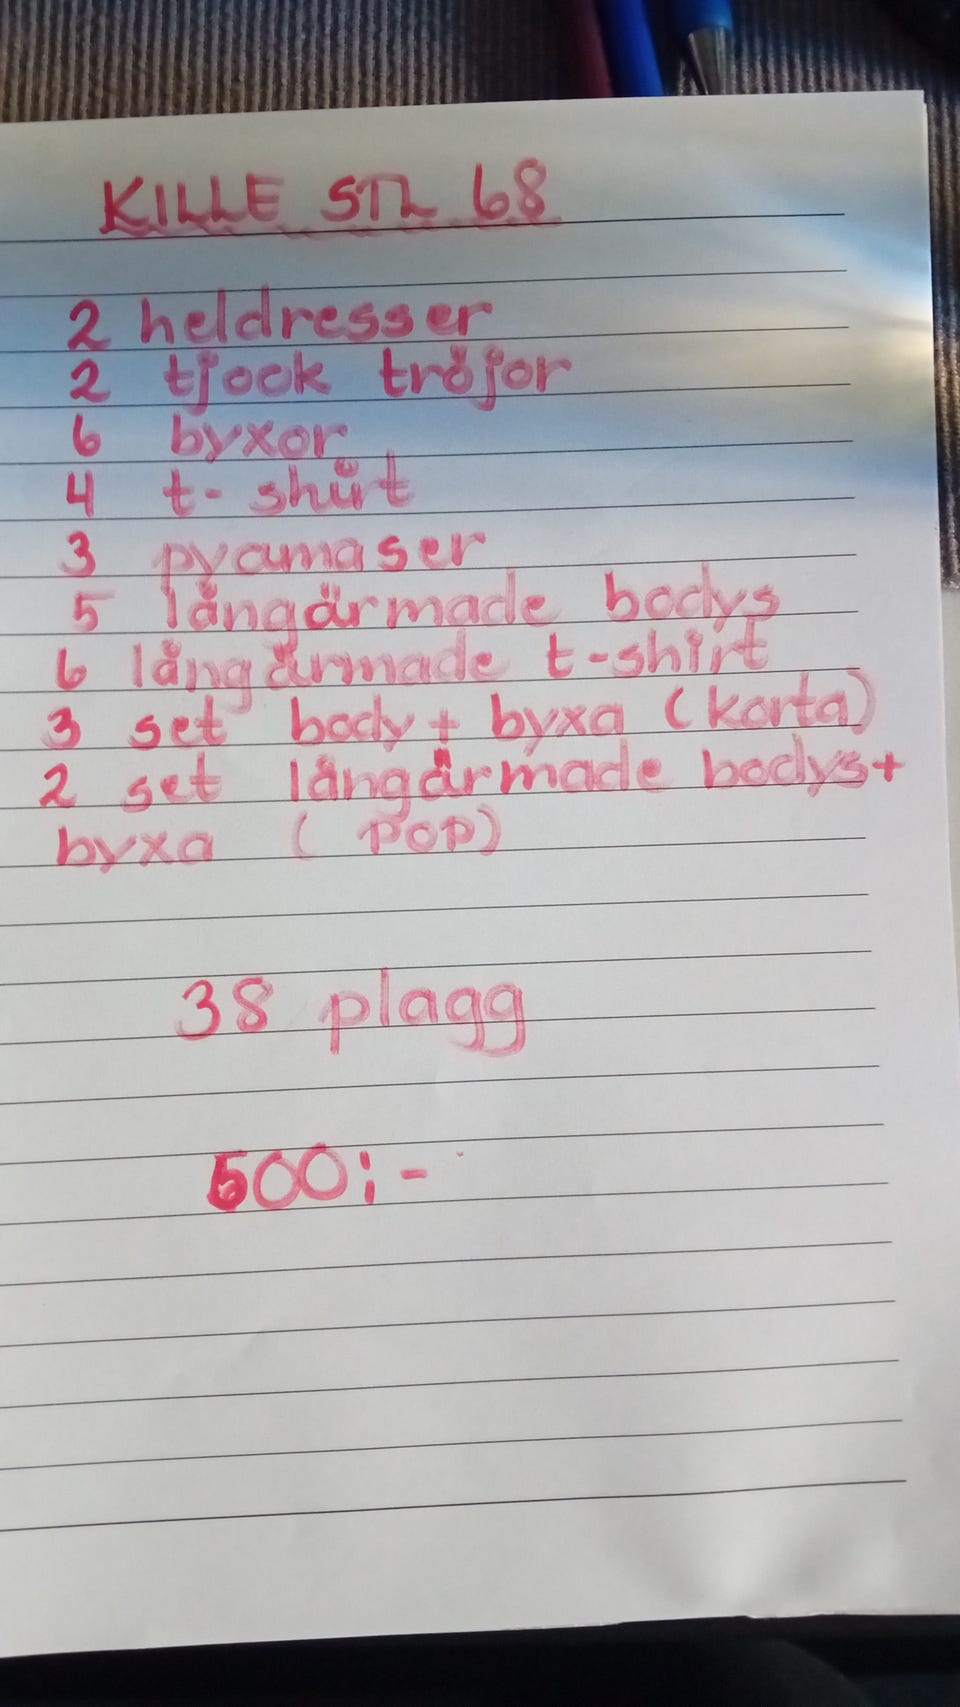 KILLE STL 68
2 heldresser
2 tjock tröjor
6 byxor
4 t-shirt
3 pycamaser
5 långärmade bodys
6 långärmade t-shirt
3 set body + byxa (korta)
2 set långärmade bodys +
byxa ( POP)
38 plagg
500:-